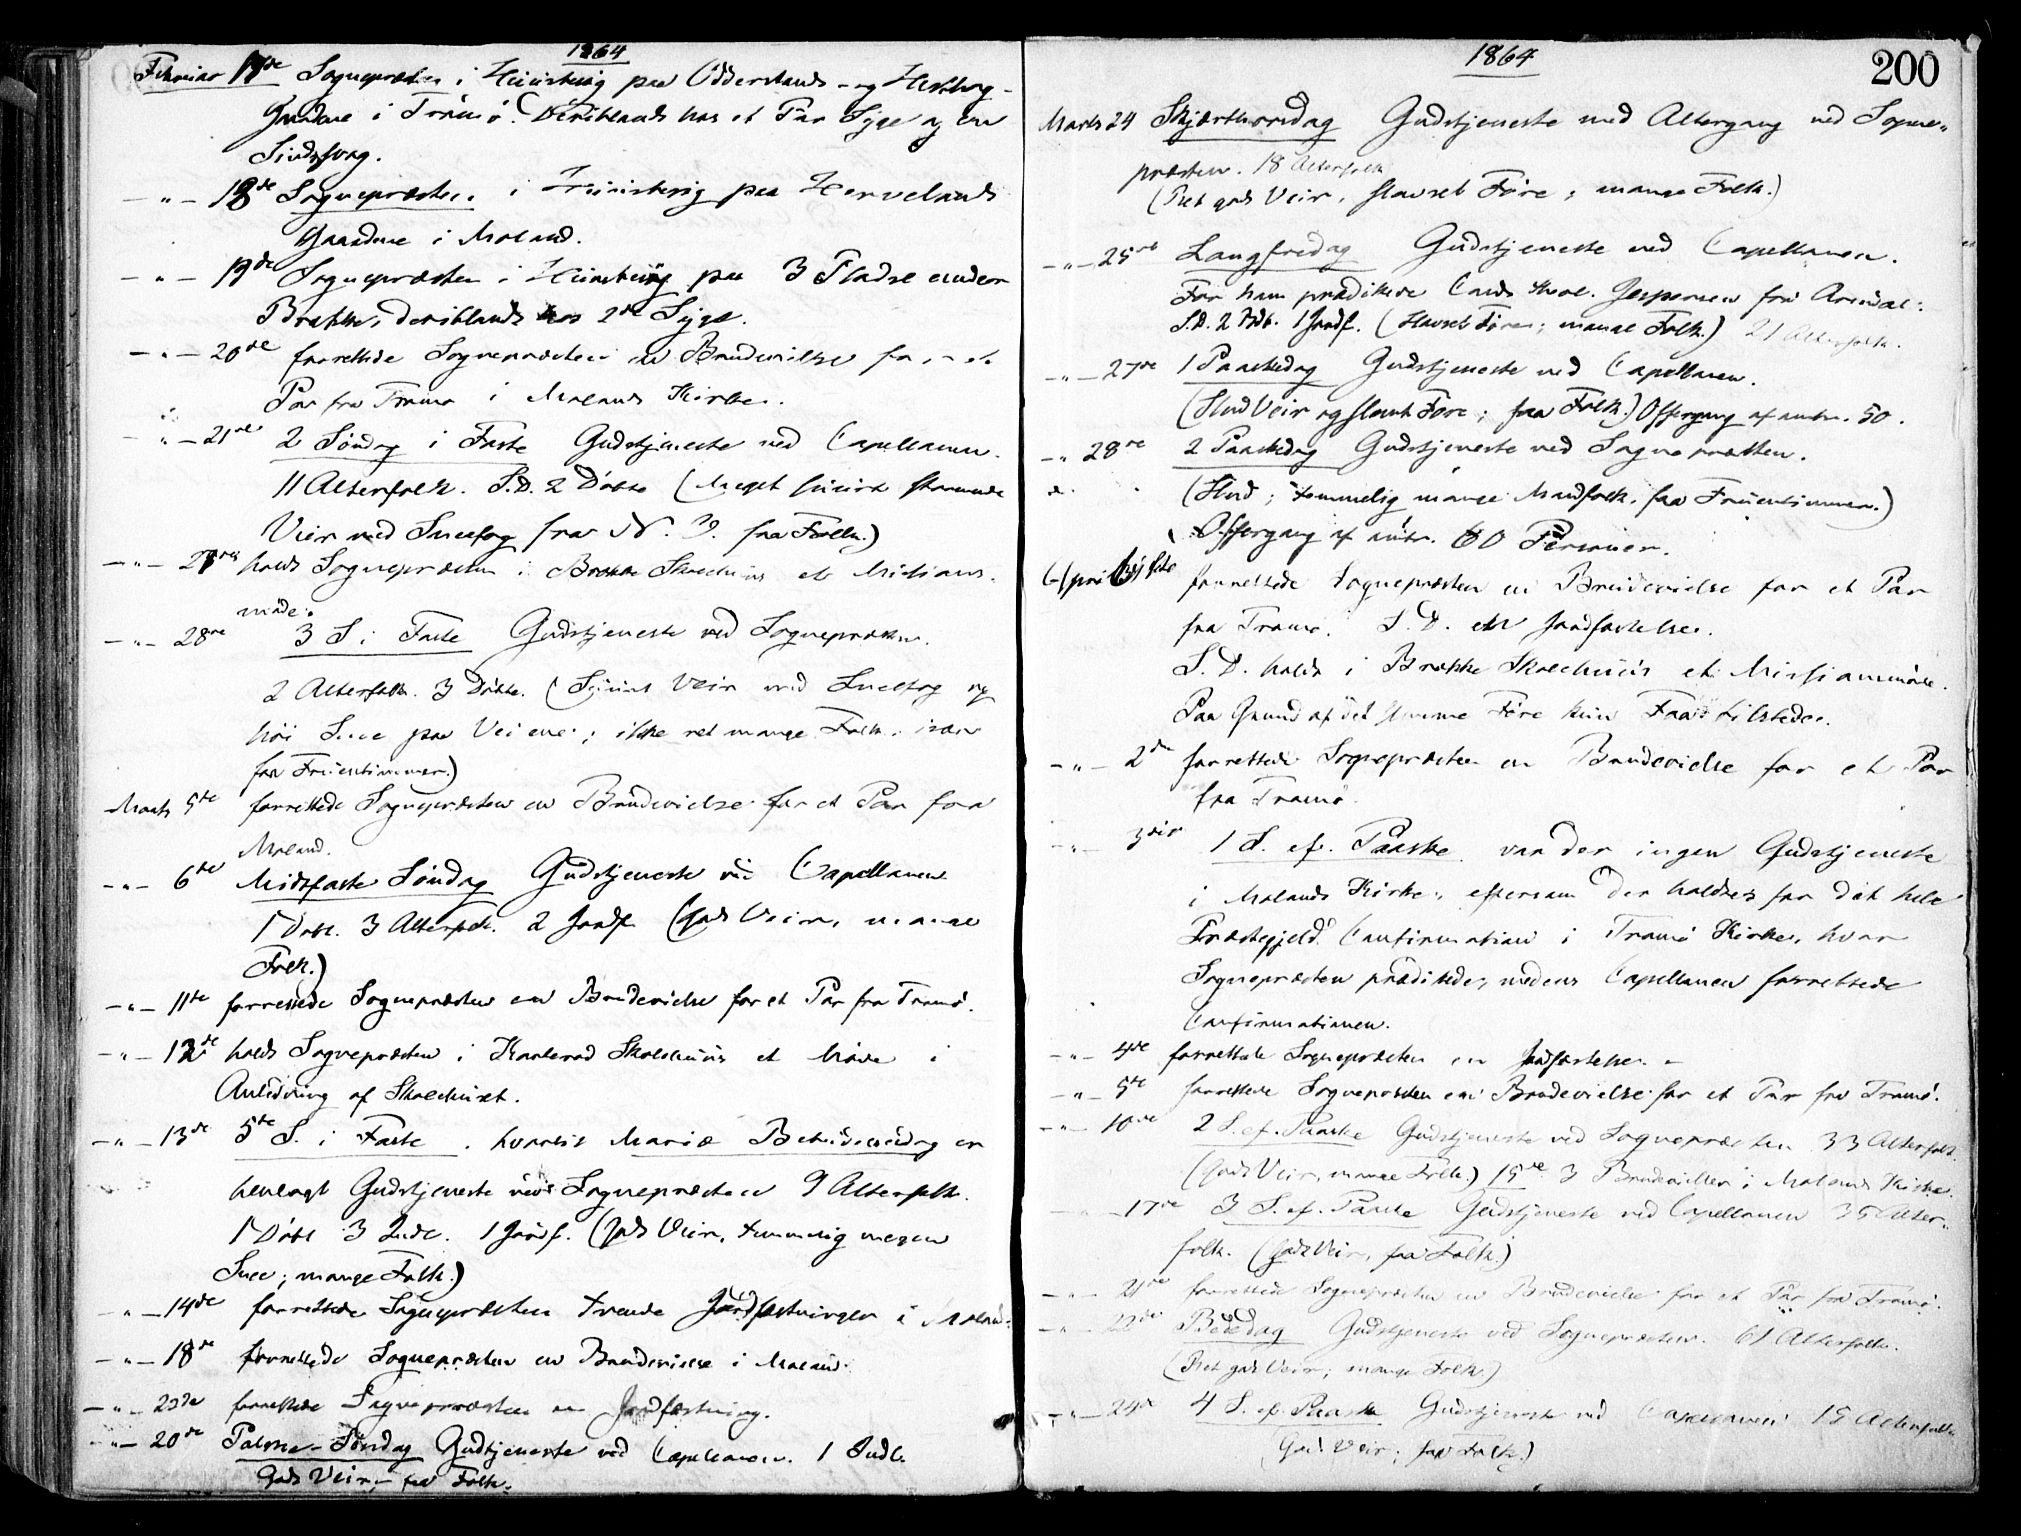 1864
Februar 17de Sognepræsten i Huusbesøg paa Odderslands- og
Gaardene i Tromø. Desiblands hos et Par Syge og en
Sindssvag.
— " — 18de Sognepræsten i Huusbesøg paa Hervelands
Gaardene i Moland.
— " — 19de Sognepræsten i Huusbesøg paa 3 Pladse under
Brække, desiblands hos 2de Syge.
— " — 20de forrettede Sognepræsten en Brudevielse for et
Par fra Tromø i Molands Kirke.
— " — 21de 2 Søndag i Faste Gudstjeneste ved Capellanen.
11 Alterfolk. S.D. 2 Døbte (Meget stormende
Veir med Sneefog fra N. O. faa Folk.)
— " — holdt Sognepræsten i Brække Skolehuus et Missions-
møde.
— " — 28de 3 S. i Faste Gudstjeneste ved Sognepræsten.
2 Alterfolk. 3 Døbte. ( Veir med Sneefog og
høi Snee paa Veiene; ikke ret mange Folk, især
faa Fruentimmer.)
Marts 5te forrettede Sognepræsten en Brudevielse for et Par fra
Moland.
— " — 6te Midfaste Søndag Gudstjeneste ved Capellanen
1 Døbt. 3 Alterfolk. 2 Jordf. (godt Veir, mange
Folk.)
— " — 11te forrettede Sognepræsten en Brudevielse for et Par fra Tromø.
— " — 12de holdt Sognepræsten i Skolehuus et Møde i
Anledning af Skolehuset.
— " — 13de 5te S. i Faste, hvortil Mariæ Bebudelsesdag er
henlagt Gudstjeneste ved Sognepræsten 9 Alterfolk.
1 Døbt 3 Indl. 1 Jordf. (godt Veir, temmelig megen
Snee; mange Folk.)
— " — 14de forrettede Sognepræsten trende Jordfæstninger i Moland.
— " — 18de forrettede Sognepræsten en Brudevielse i Moland.
— " — forrettede Sognepræsten en Jordfæstning.
— " — 20de Palme-Søndag Gudstjeneste ved Capellanen. 1 Indl.
Godt Veir, faa Folk.
1864
200
Marts 24 Skjærthorsdag Gudstjeneste med Altergang ved Sogne-
præsten. 18 Alterfolk
(Ret godt Veir, Føre; mange Folk.)
— " — 25de Langfredag Gudstjeneste ved Capellanen.
For ham prædikede Cand. theol. Jespersen fra Arendal.
S.D. 2 Døb. 1 Jordf. ( Føre; mange Folk.) 21 Alterfolk.
— " — 27de 1 Paaskedag Gudstjeneste ved Capellanen.
(Slud Veir og slemt Føre; faa Folk.) Offergang af omtr. 50.
— " 28de 2 Paaskedag Gudstjeneste ved Sognepræsten.
(Slud; temmelig mange Mandfolk, faa Fruentimmer.)
Offergang af omtr. 60 Personer.
April 1ste forrettede Sognepræsten en Brudevielse for et Par
fra Tromø. S. D. en Jordfæstelse.
S. D. holdt i Brække Skolehuus et Missionsmøde.
Paa Grund af det slemme Føre kun Faa tilstede.
— " — 2de forrettede Sognepræsten en Brudevielse for et Par
fra Tromø.
— " — 3die 1 S. ef. Paaske var der ingen Gudstjeneste
i Molands Kirke, eftersom der holdtes for det hele
Præstegjeld Confirmation i Tromø Kirke, hvor
Sognepræsten prædikede, medens Capellanen forrettede
Confirmationen.
— " — 4de forrettede Sognepræsten en Jordfæstelse.
— " — 5te forrettede Sognepræsten en Brudevielse for et Par fra Tromø.
— " — 10de 2 S. ef. Paaske Gudstjeneste ved Sognepræsten 33 Alterfolk.
(godt Veir, mange Folk.) 15de 3 Brudevielser i Molands Kirke.
— " — 17de 3 S. ef. Paaske Gudstjeneste ved Capellanen 35 Alter-
folk. (godt Veir, faa Folk.)
— " — 21de forrettede Sognepræsten en Brudevielse for et Par fra Tromø.
— " — 22de Bededag Gudstjeneste ved Sognepræsten. 61 Alterfolk.
(Ret godt Veir; mange Folk)
— " — 24de 4 S. ef. Paaske Gudstjeneste ved Capellanen 15 Alterfolk
(Godt Veir; faa Folk.)